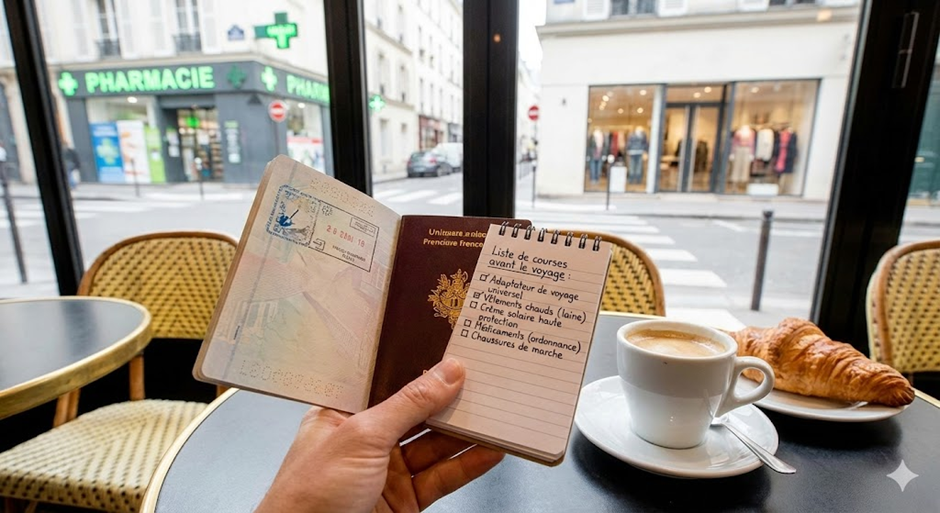 PHARMACIE
PHARM
Liste de courses
avant le voyage :
Adaptateur de voyage
universel
Vêtements chauds (laine)
Crème solaire haute
protection
Médicaments (ordonnance)
Chaussures de marche